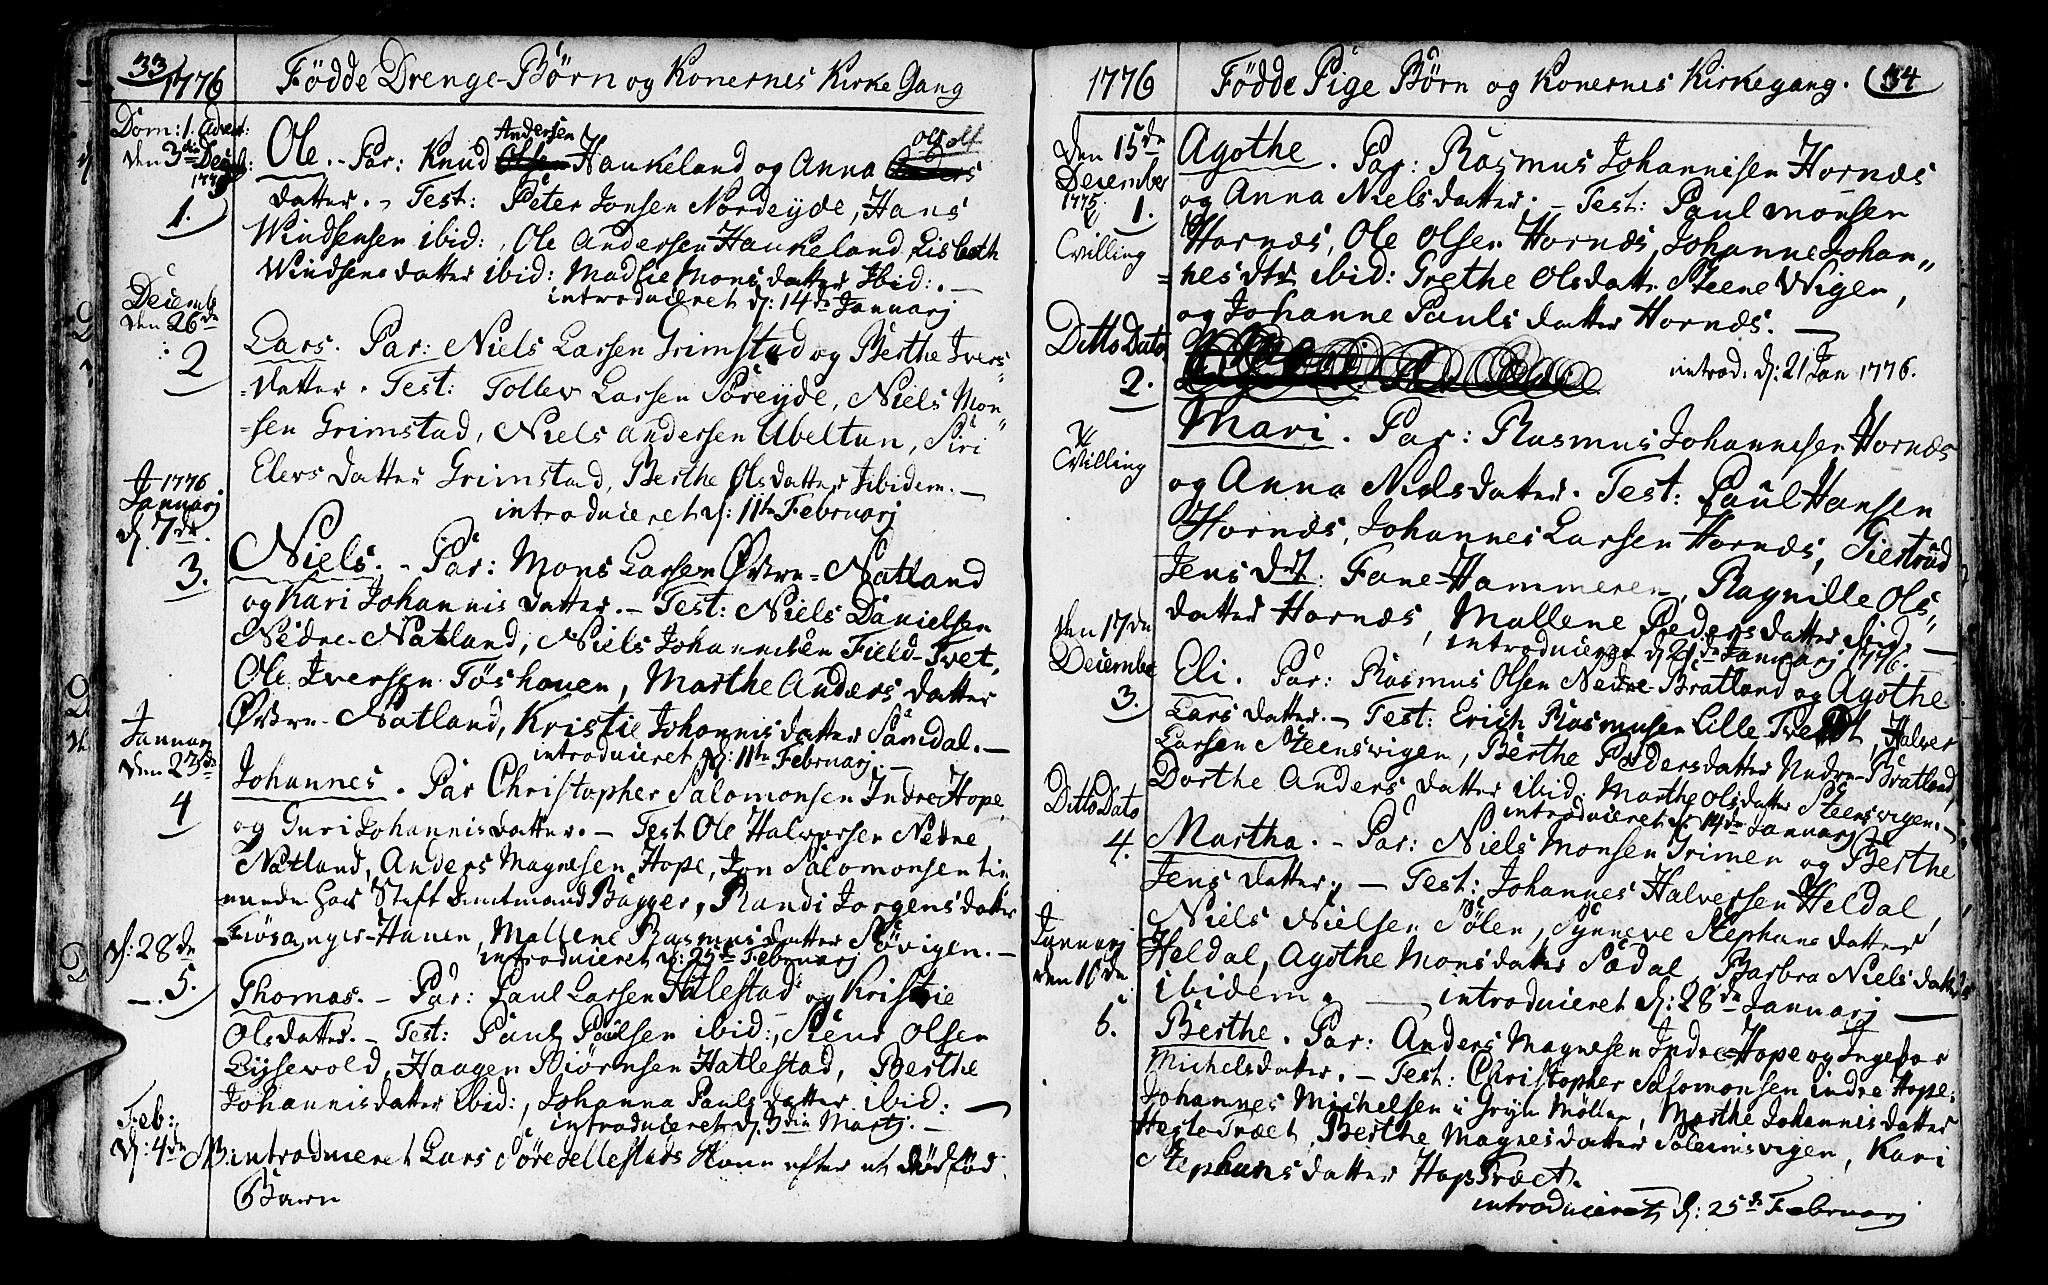 33
1776 Födde Drenge-Börn og Konernes Kirke Gang
Dom: 1. Advent:
den 3die Decb:
1775
1.
Andersen
Olsdtr
Ole. - Par: Knud Olsen Haukeland og Anna Anders
datter. - Test: Peter Jonsen Nordeyde, Hans
Windsensen ibid:, Ole Andersen Haukeland, Lisbeth
Windsens datter ibid: Madlie Mons datter Ibid:. -
introduceret d: 14de Januarj
Decemb
den 26de
2
Lars. Par: Niels Larsen Grimstad og Berthe Ivers
=datter. Test: Tollev Larsen Söreyde, Niels Mon"
=sen Grimstad, Niels Andersen Ubeltun, Siri
Elers datter Grimstad, Berthe Olsdatter Ibidem. -
introduceret d: 11te Februarj
A 1776
Januarj
d. 7de.
3.
Niels. - Par: Mons Larsen Övre-Natland
og Kari Johannis datter. - Test: Niels Danielsen
Nedre-Natland, Niels Johannesen Field-Tvet,
Ole Iversen Töshouen, Marthe Anders datter
Övre-Natland, Kristie Johannisdatter Sandal. -
introduceret d: 11te Februarj. -
Januarj
den 23de
4
Johannes. Par Christopher Salomonsen Indre Hope
og Guri Johannisdatter. - Test Ole Halversen Nedre
Natland, Anders Magnesen Hope, Jon Salomonsen tie
nende hos Stift Amtmand Bagger, Randi Jorgensdatter
Fiösanger-Hauen, Mallene Rasmusdatter Sövigen. -
introduceret d: 25de Februarj
d: 28de
5.
Thomas. - Par: Paul Larsen Hatlestad og Kristie
Olsdatter. - Test: Paul Paulsen ibid:, Siur Olsen
Lyssevold, Haagen Biörnsen Hatlestad, Berthe
Johannisdatter ibid:, Johanna Pauls datter ibid: -
introduceret d. 3die Martj. -
Feb:
d: 4de NB introduceret Lars Söre Tellestads Kone efter et dödföd
Barn
1776 Födde Pige Börn og Konernes Kirkegang. 34
Den 15de
December
1775
1.
Tvilling
Agothe. Par: Rasmus Johannisen Hornæs
og Anna Nielsdatter. - Test: Paul Monsen
Hornæs, Ole Olsen Hornæs, Johanne Johan"
=nesdtr ibid: Grethe Olsdattr Steene Wigen,
og Johanne Pauls datter Hornæs. -
introd: d: 21 Jan 1776.
Ditto Dato
2.
Tvilling
Mari. Par: Rasmus Johannesen Hornæs
og Anna Nielsdatter. Test: Paul Hansen
Hornæs, Johannes Larsen Hornæs, Giertrud
Jens dat: Fane-Hammeren, Ragnille Ols"
datter Hornæs, Mallene Peders datter ibid -
introduceret d 21de Januarj 1776.
den 17de
Decembr
3.
Eli. Par: Rasmus Olsen Nedre Bratland og Agothe
Lars datter. - Test: Erich Rasmusen Lille Tvedt, Halver
Larsen Steensvigen, Berthe Pedersdatter Nedre-Bratland,
Dorthe Anders datter ibid: Marthe Olsdatter Steensvigen. -
introduceret d: 14de Januarj
Ditto Dato
4.
Martha. - Par: Niels Monsen Grimen og Berthe
Jens datter. - Test: Johannes Halversen Heldal,
Niels Nielsen Sölen, Synneve Stephans datter
Heldal, Agothe Monsdatter Sædal, Barbra Niels datter
ibidem. - introduceret d: 28de Januarj -
Januarj
den 16de
5.
Berthe. Par: Anders Magnesen Indre-Hope og Ingebor
Michelsdatter. - Test: Christopher Salomonsen indre Hope,
Johannes Michelsen i Gryn Möllen, Marthe Johannisdatter
Hesle Træet, Berthe Magnesdatter Soleimsvigen, Kari
Stephansdatter Hops Træet.
introduceret d: 25de Februarj